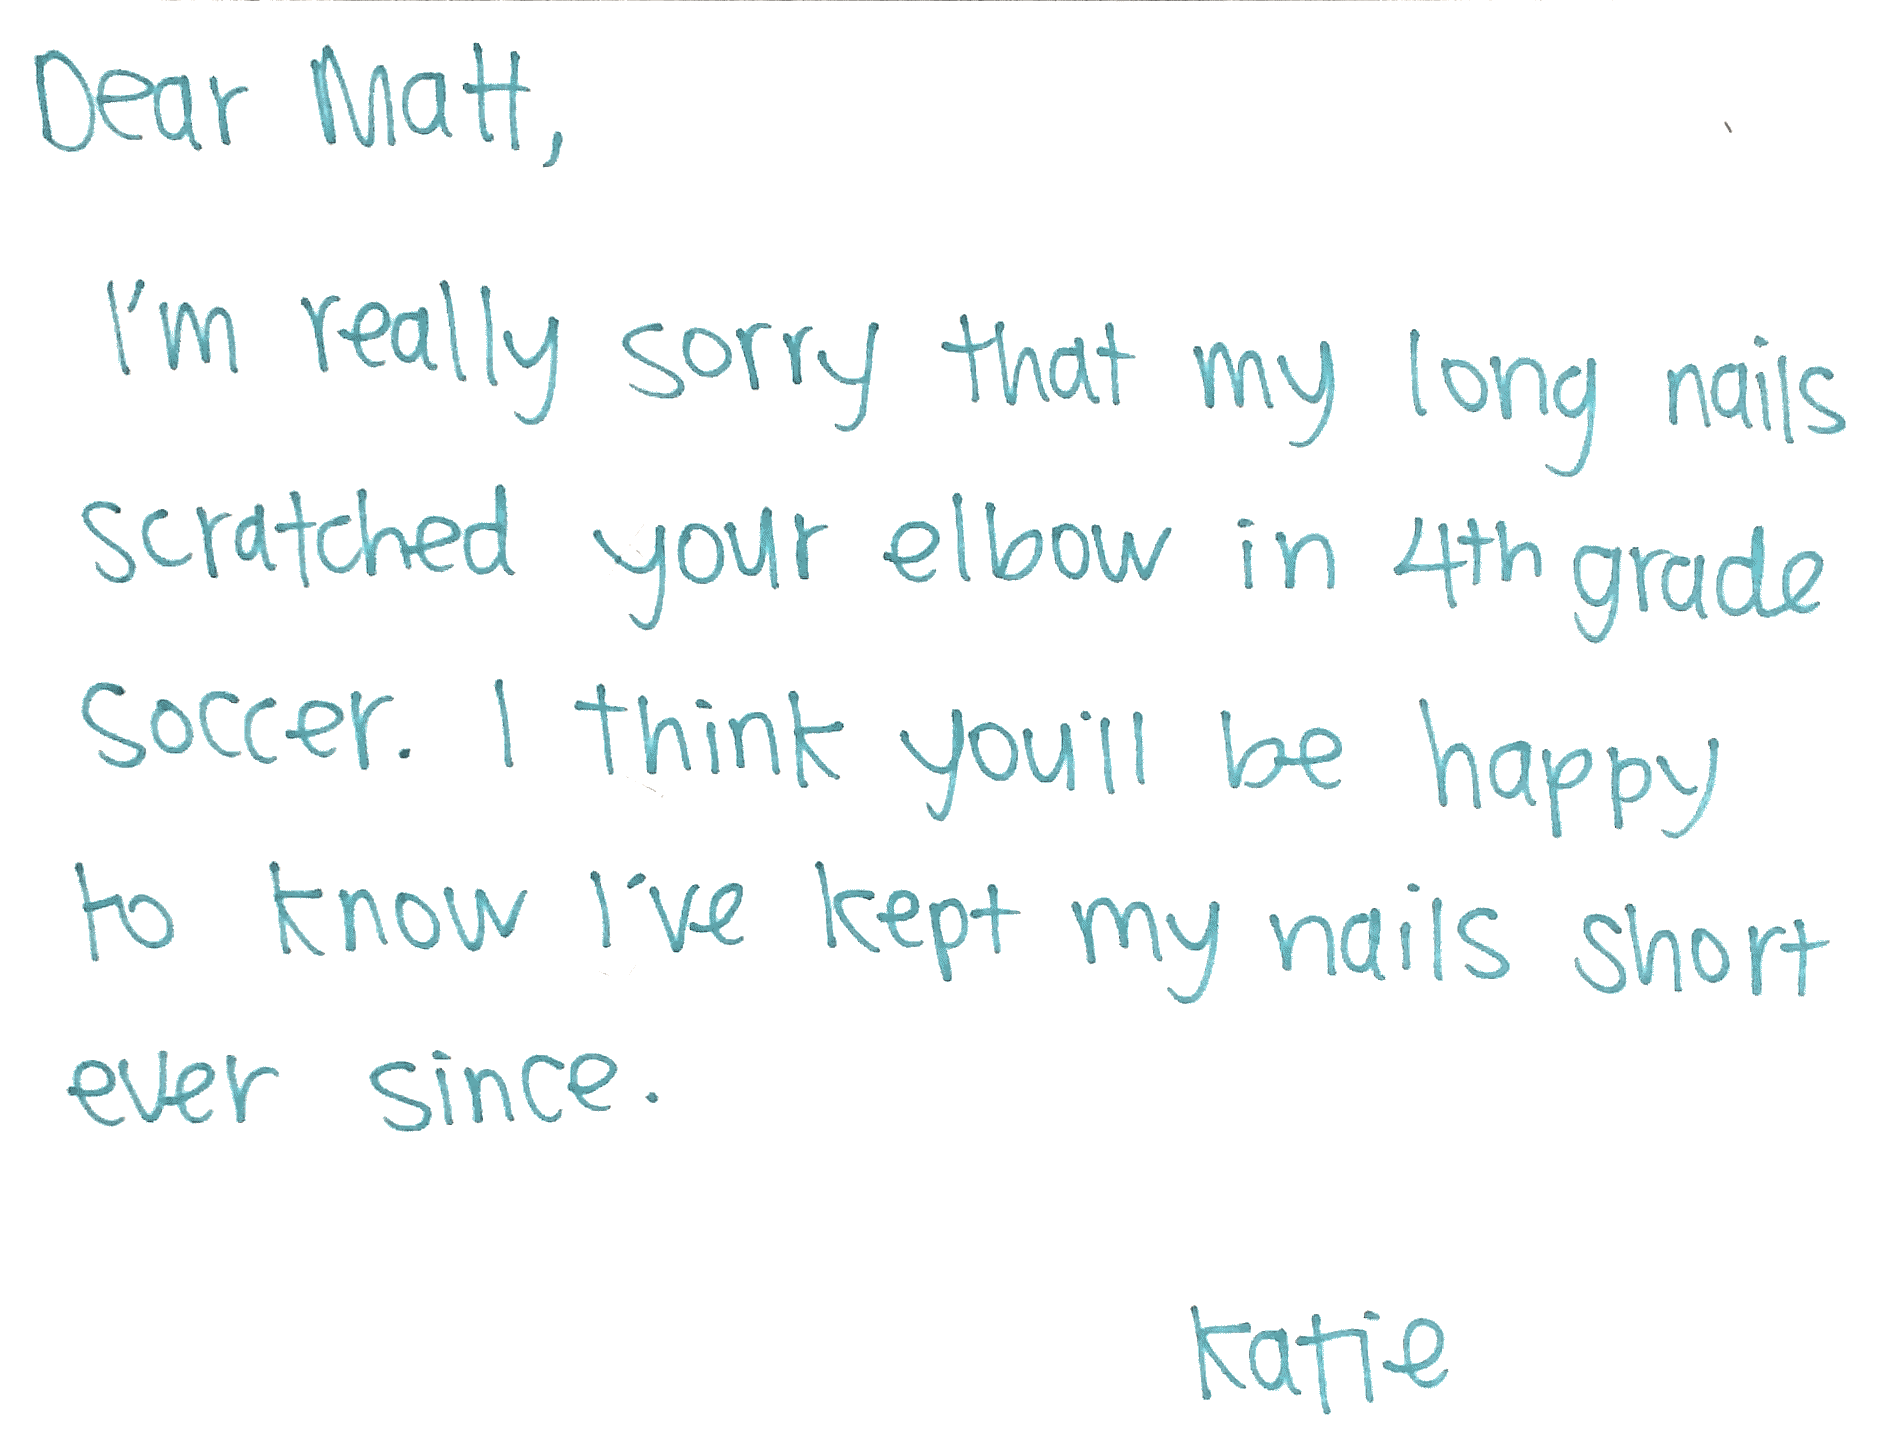 Dear Matt,
I'm really sorry that my long nails
scratched your elbow in 4th grade
soccer. I think you'll be happy
to know I've kept my nails short
ever since.
Katie